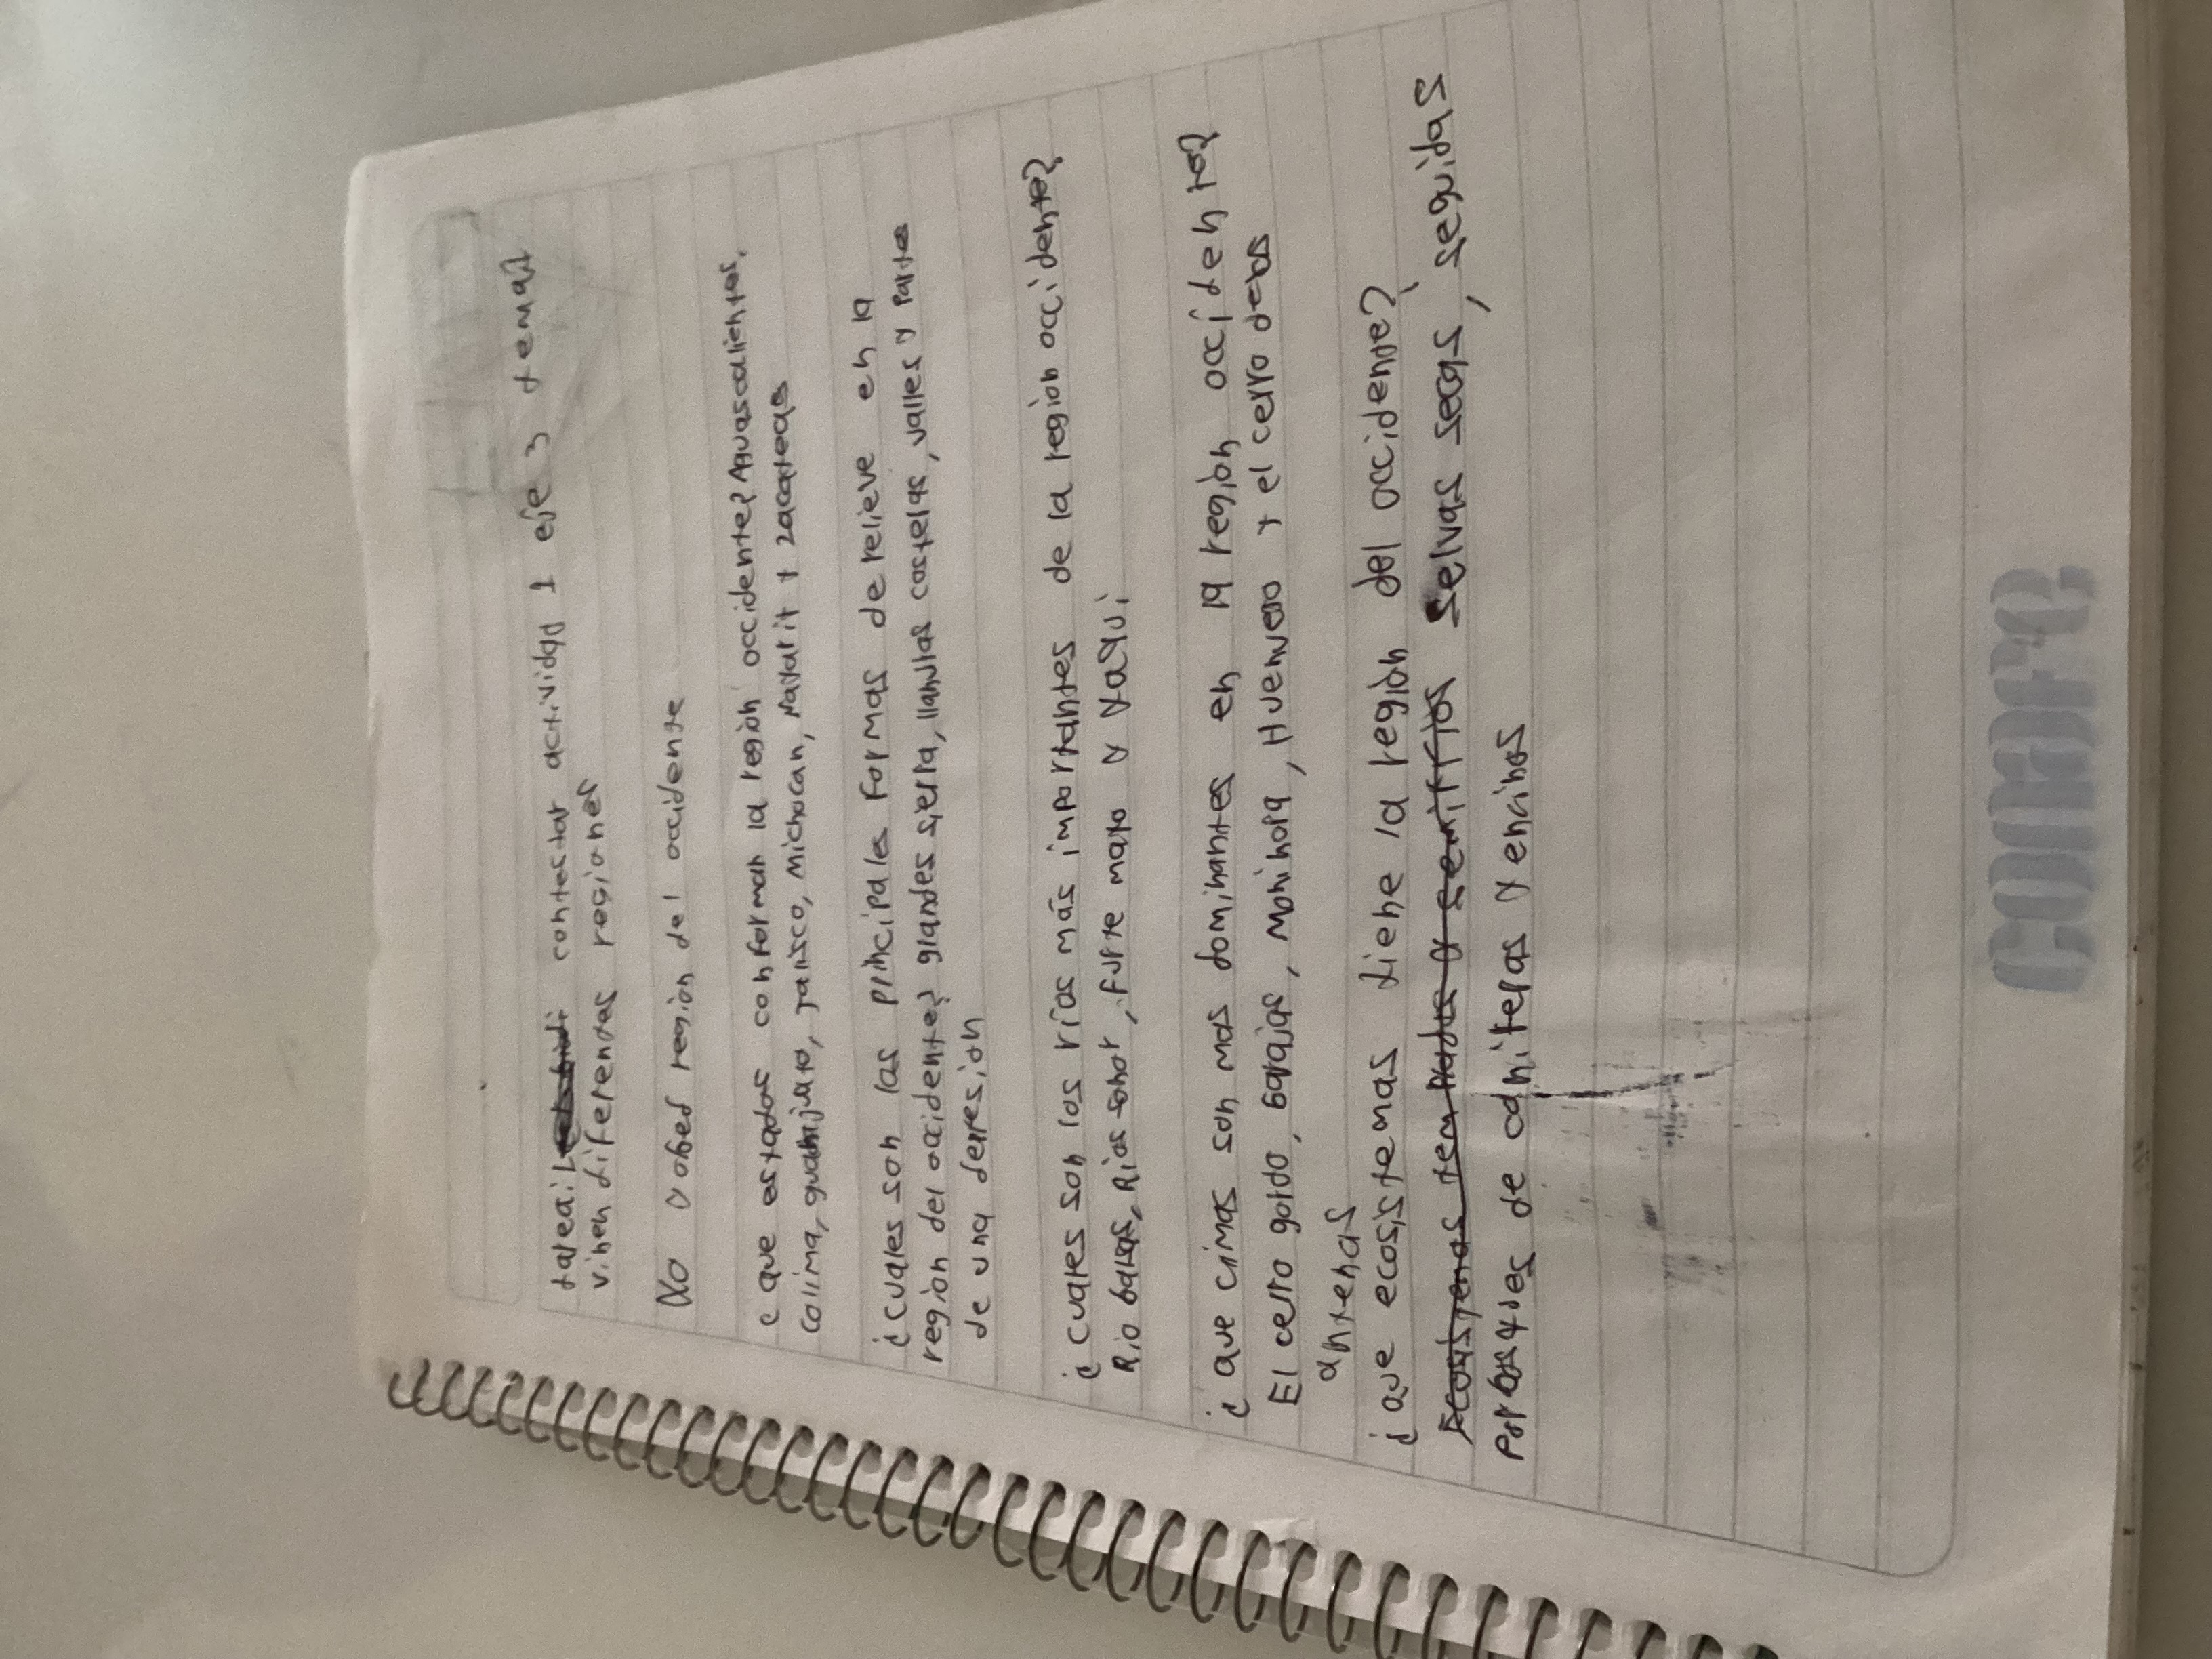 tarea: contestar actividad 1 eje 3 tema2
vinen diferentes regiones
Yo obed region del occidente
¿que estados conforman la región occidente? Aguascalientes,
colima, guanijuato, jalisco, michoacan, Nayarit y zacatecas
¿cuales son las principales formas de relieve en la
region del occidente? grandes sierra, llanuras costeras, valles y partes
de una depresion
¿cuales son los ríos más importantes de la region occidente?
Rio balsas, Rios sonor, furte mayo y yaqui
¿que cimas son mas dominantes en la región occidente?
El cerro gordo, barajas, Mohinora, Huenueo y el cerro de las
antenas
¿que ecosistemas tiene la región del occidente?
Ecosistemas templados y semifrios selvas secas, seguidas
por de coniferas y encinos
COMAFE